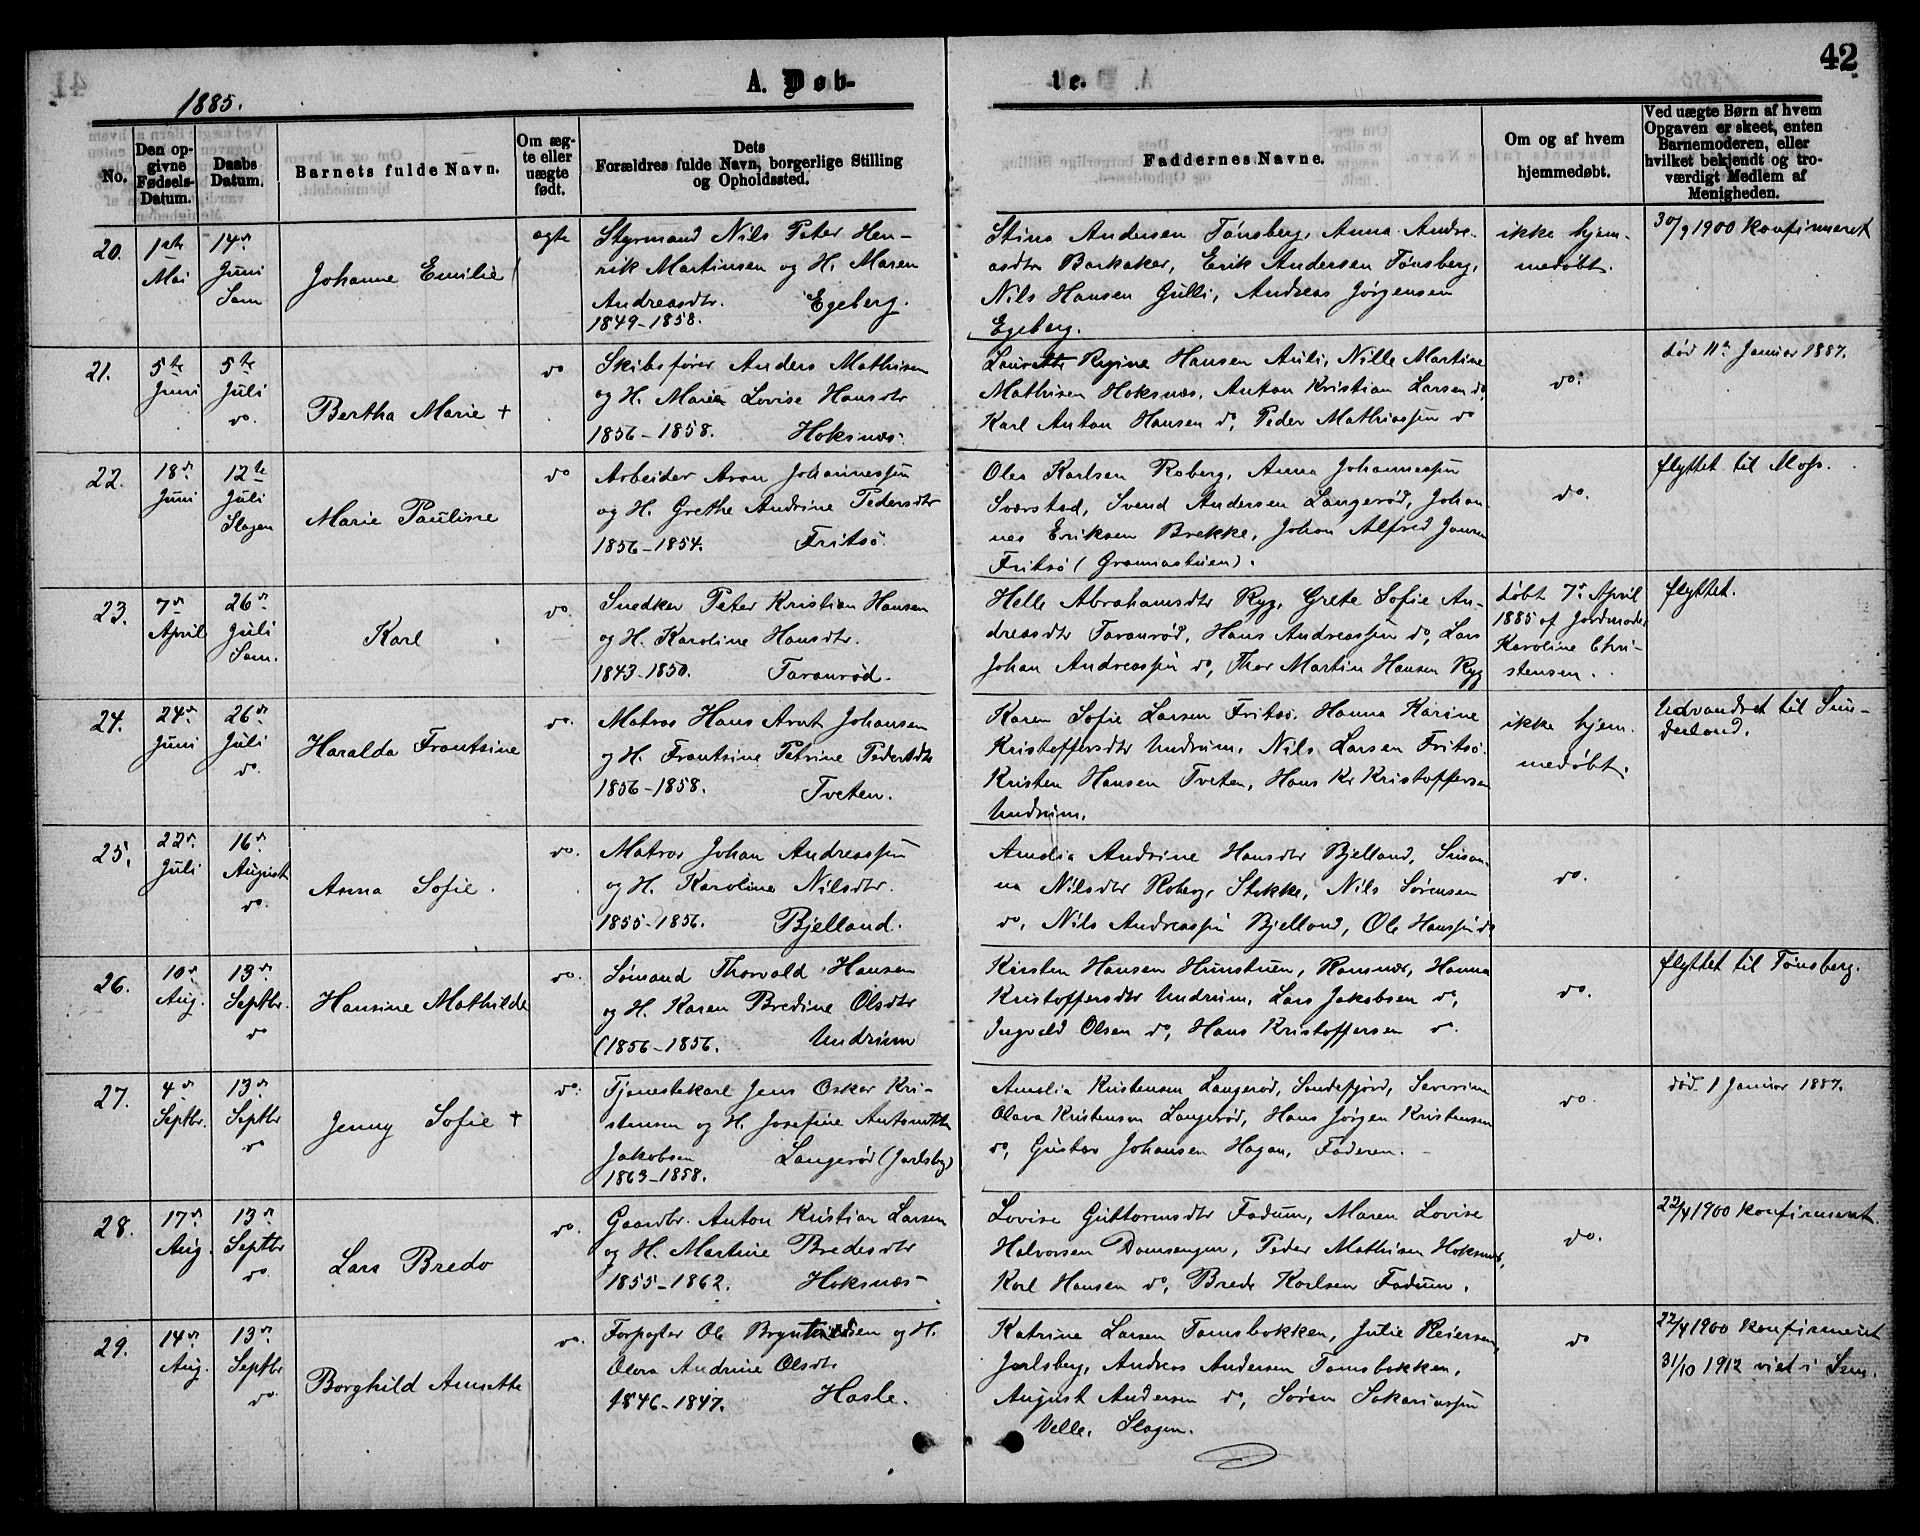 42
1885.
A. Døb-
te.
No.
Den op-
givne
Fødsels-
Datum.
Daabs
Datum.
Barnets fulde Navn.
Om æg-
te eller
uægte
født.
Dets
Forældres fulde Navn, borgerlige Stilling
og Opholdssted.
Faddernes Navne.
Om og af hvem
hjemmedøbt.
Ved uægte Børn af hvem
Opgaven er skeet, enten
Barnemoderen, eller
hvilket bekjendt og tro-
værdigt Medlem af
Menigheden.
20.
1ste
Mai
14de
Juni
Sem
Johanne Emilie
ægte
Styrmand Nils Peter Hen-
rik Martinsen og H. Maren
Andreasdtr.
1849-1858. Egeberg.
Stina Andersen Tønsberg, Anna Andre-
asdtr Barkaker, Erik Andersen Tønsberg,
Nils Hansen Gulli, Andreas Jørgensen
Egeberg.
ikke hjem-
medøbt.
30/9 1900 konfirmeret
21.
5te
Juni
5te
Juli
do.
Bertha Marie +
do
Skibsfører Anders Mathisen
og H. Maren Lovise Hansdtr
1856-1858. Hoksnæs.
Regine Hansen Auli, Nille Martine
Mathisen Hoksnæs, Anton Kristian Larsen do,
Karl Anton Hansen do, Peder Mathiassen do
do.
død 11te Januar 1887.
22.
18de
Juni
12te
Juli
Slagen
Marie Pauline
do
Arbeider Aron Johannessen
og H. Grethe Andrine Pedersdtr
1856-1854. Fritsø.
Olea Karlsen Roberg, Anna Johannessen
Sværstad, Svend Andersen Langerød, Johan-
nes Eriksen Brekke, Johan Alfred Jansen
Fritsø (Graniastuen).
do.
flyttet til Moss.
23.
7de
April
26de
Juli
Sem.
Karl
do.
Snedker Peter Kristian Hansen
og H. Karoline Hansdtr.
1843-1850. Taranrød.
Helle Abrahamsdtr Ryg, Grete Sofie An-
dreasdtr Taranrød, Hans Andreassen do, Lars
Johan Andreassen do, Thor Martin Hansen Ryg
døbt 7de April
1885 af Jordmoder
Karoline Chri-
stensen.
flyttet.
24.
24de
Juni
26de
Juli
do.
Haralda Frantsine
do.
Matros Hans Arnt Johansen
og H. Frantsine Petrine Pedersdtr
1856-1858. Tveten.
Karen Sofie Larsen Fritsø. Hanna Karine
Kristoffersdtr Undrum, Nils Larsen Fritsø.
Kristen Hansen Tveten, Hans Kr Kristoffersen
Undrum.
ikke hjem-
medøbt.
Udvandret til Sun-
derland.
25.
22de
Juli
16de
August
do.
Anna Sofie.
do.
Matros Johan Andreassen
og H. Karoline Nilsdtr.
1855-1856. Bjelland.
Amalia Andrine Hansdtr Bjelland, Susan-
na Nilsdtr Roberg, Stokke, Nils Sørensen
do, Nils Andreassen Bjelland, Ole Hanssen do
do.
26.
10de
Aug.
13de
Septbr.
do
Hansine Mathilde
do.
Sømand Thorvald Hansen
og H. Karen Bredine Olsdtr
(1856-1856. Undrum
Kirsten Hansen Hunstuen, Ramnæs, Hanna
Kristoffersdtr Undrum, Lars Jakobsen do,
Ingvald Olsen do, Hans Kristoffersen do.
do.
flyttet til Tønsberg.
27.
4de
Septbr.
13de
Septbr
do
Jenny Sofie +
do.
Tjenestekarl Jens Oskar Kri-
stensen og H. Josefine Antonette
Jakobsen Langerød (Jarlsberg)
1863-1858.
Amalia Kristensen Langerød, Sandefjord, Severine
Olava Kristensen Langerød, Hans Jørgen Kristensen
do, Gustav Johansen Hagan, Faderen.
do.
død. 1 Januar 1887.
28.
17de
Aug.
13de
Septbr
do.
Lars Bredo
do.
Gaardbr. Anton Kristian Larsen
og H. Martine Bredesdtr
1855-1862. Hoksnæs
Lovise Guttormsdtr Fadum, Maren Lovise
Halvorsen Damsengen, Peder Mathisen Hoksnæs,
Karl Hansen do, Brede Karlsen Fadum.
do.
22/4 1900 konfirmeret.
29.
14de
Aug.
13de
Septbr
do.
Borghild Annette
do.
Forpagter Ole Bryntildsen og H.
Olava Andrine Olsdtr
1846-1847. Hasle.
Katrine Larsen Tamsbokken, Julie Reiersen
Jarlsberg, Andreas Andersen Tamsbokken,
August Andersen do, Søren Sakariassen
Velle, Slagen.
do
22/4 1900 konfirmeret
31/10 1912 viet i Sem.